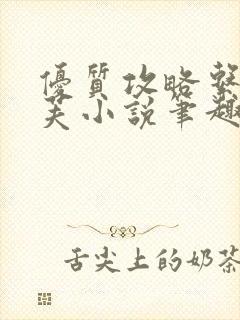 優質攻略繫
夫小說筆趣
舌尖上的奶茶